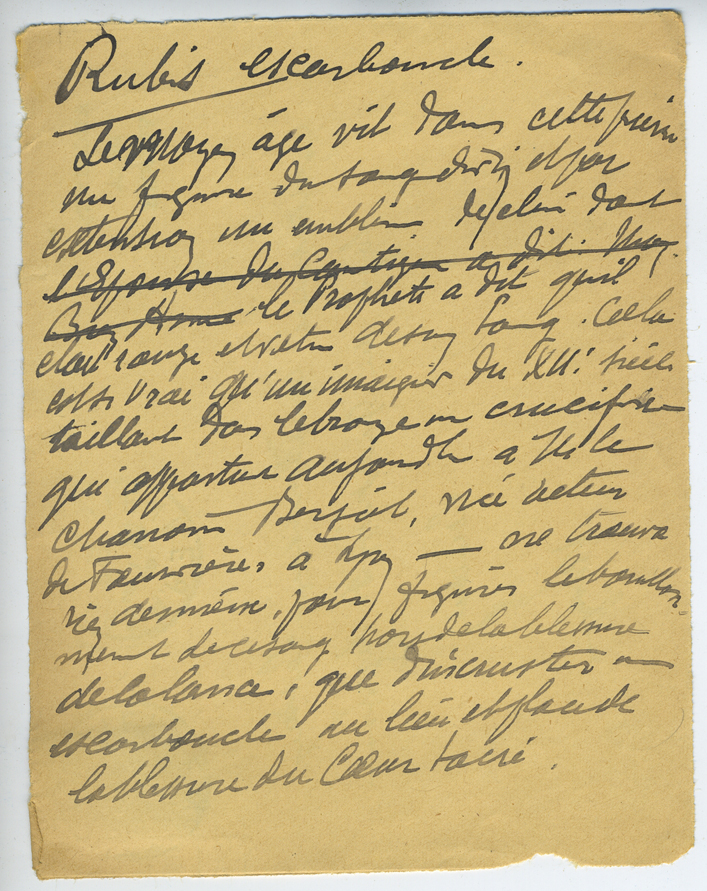 Rubis escarboucle.
Le moyen âge vit dans cette pierre
une figure du sang divin et par
extension un emblème de celui dont
l'Epouse du Cantique a dit : Mon
le Prophète a dit qu'il
était rouge et vêtu de son sang. Cela
est si vrai qu'un imaigier du XIIe siècle
taillant dans le bronze un crucifix
qui appartint à Mr le
chanoine, directeur
de Fourvière, à Lyon — ne trouva
rien de mieux, pour figurer le bouillon-
nement de ce sang hors de la blessure
de la lance, que d'incruster une
escarboucle au lieu et place de
la blessure du Cœur sacré.